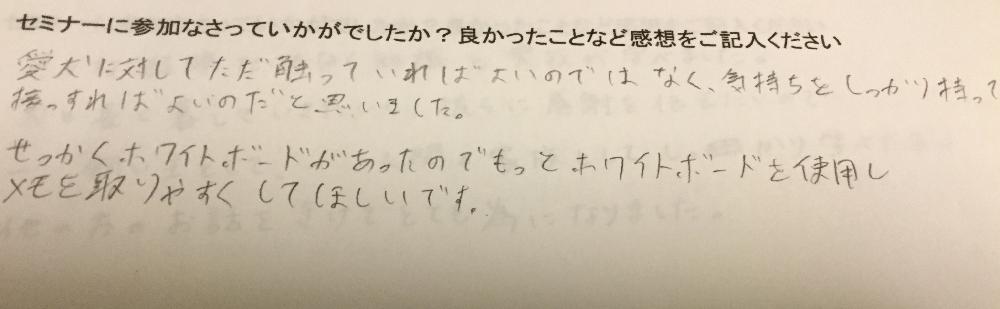 セミナーに参加なさっていかがでしたか？良かったことなど感想をご記入ください
愛犬に対してただ触っていればよいのではなく、気持ちをしっかり持って
接っすればよいのだと思いました。
せっかくホワイトボードがあったのでもっとホワイトボードを使用し
メモを取りやすくしてほしいです。